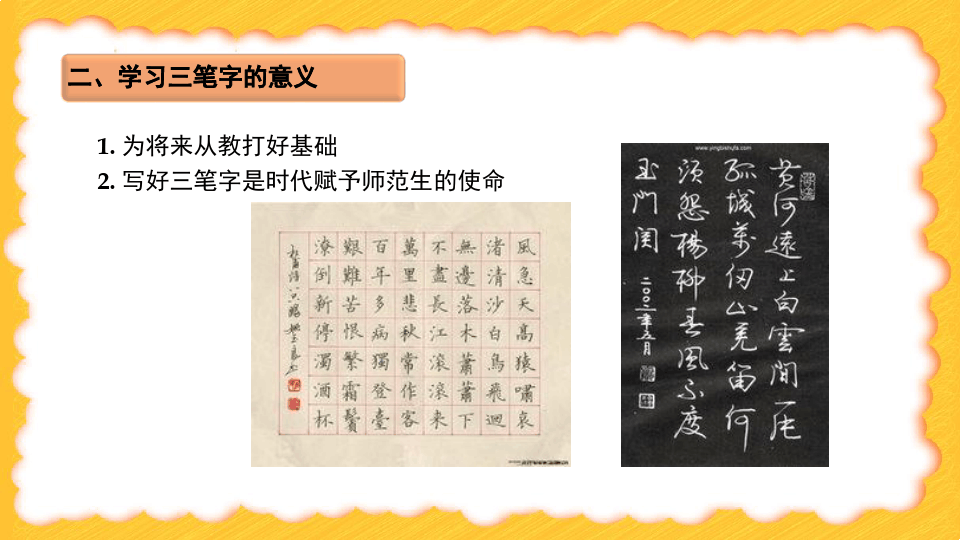 二、学习三笔字的意义
1. 为将来从教打好基础
2. 写好三笔字是时代赋予师范生的使命
風急天高猿嘯哀
渚清沙白鳥飛迴
無邊落木蕭蕭下
不盡長江滾滾来
萬里悲秋常作客
百年多病獨登臺
艱難苦恨繁霜鬢
潦倒新停濁酒杯
www.yingbishufa.com
黄河遠上白雲間一片
孤城萬仞山羌笛何
須怨楊柳春風不度
玉门関
二〇〇二年五月